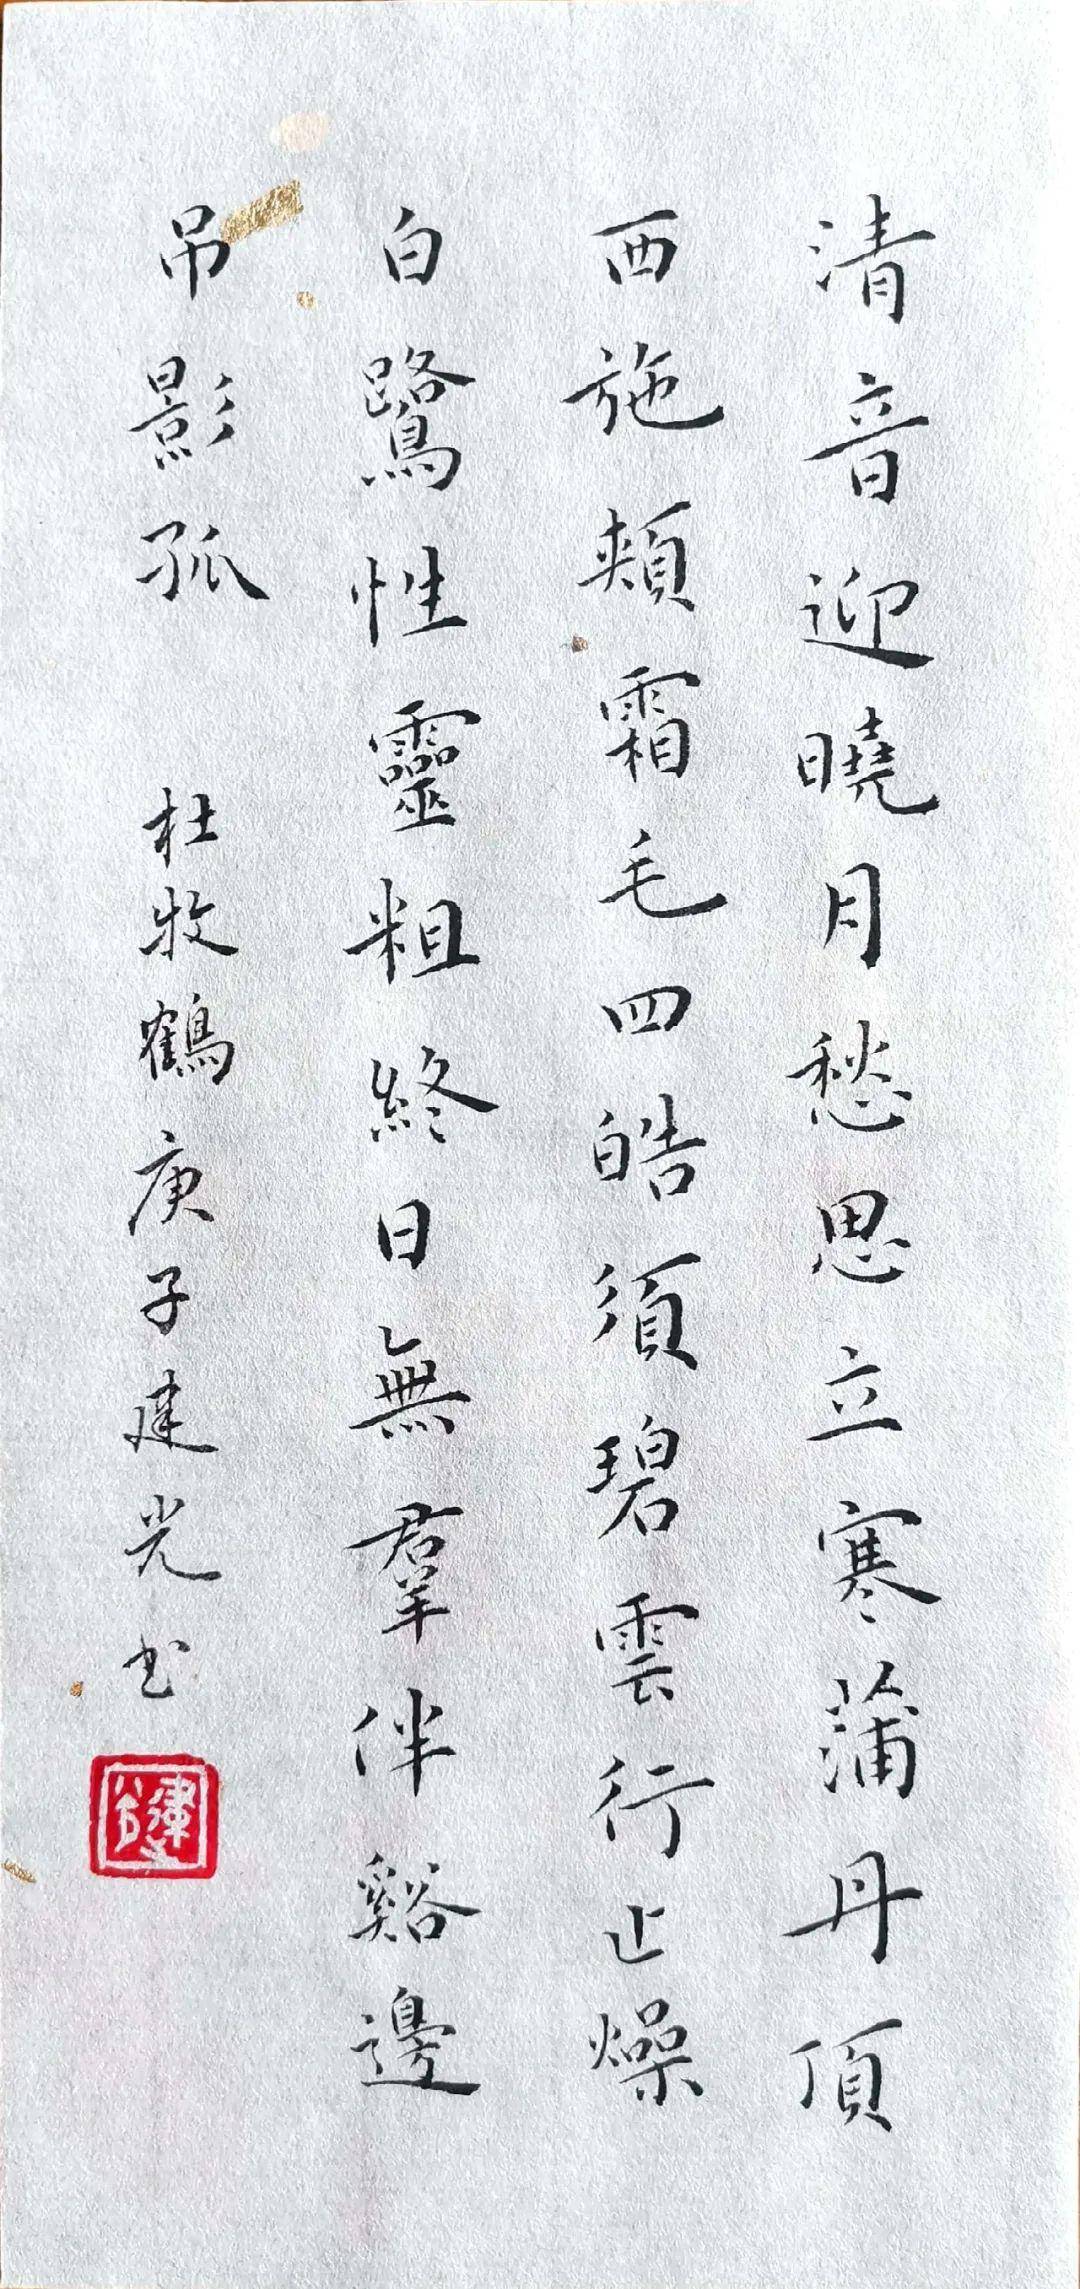 清音迎曉月愁思立寒蒲丹頂
西施頰霜毛四皓須碧雲行止燥
白鷺性靈粗終日無羣伴谿邊
吊影孤 杜牧鶴庚子建光书